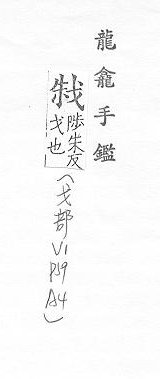 龍龕手鑑
陟朱反
戈也
(戈部 V1 P59 A4)